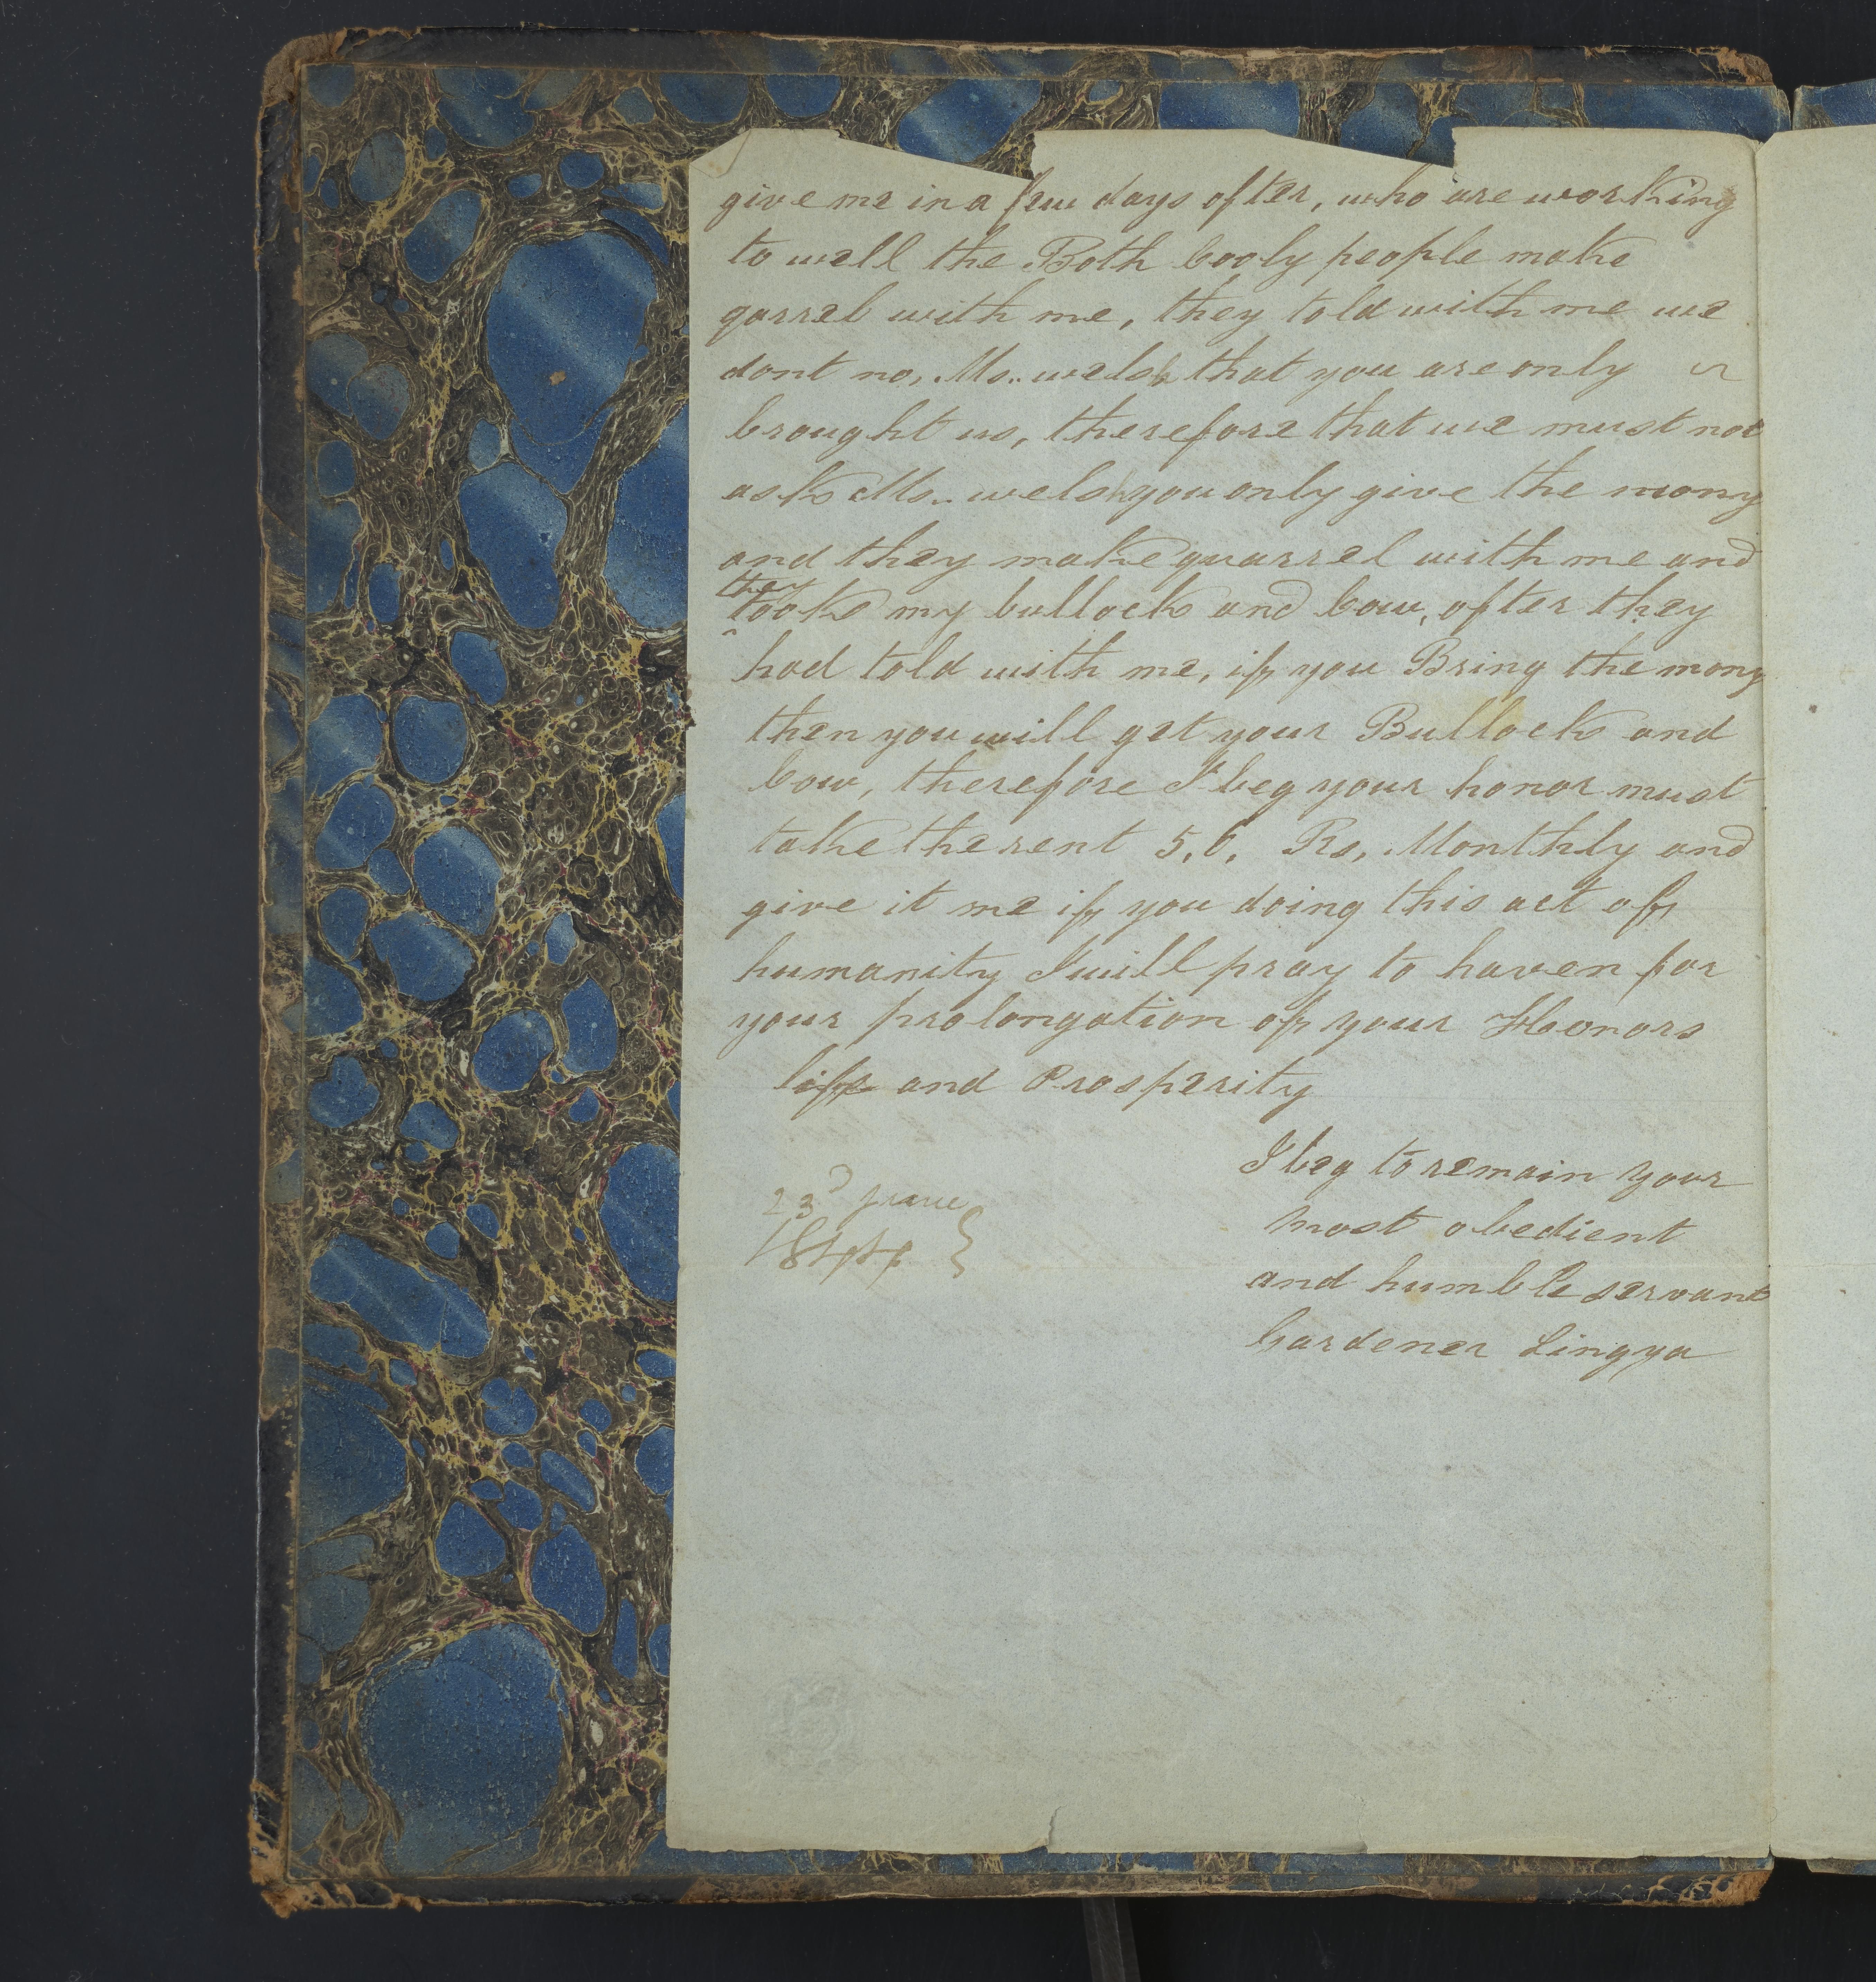 give me in a few days after, who are working
to well the Both Cooly people make
qarrel with me, they told with me we
dont no, Mr.. welsh that you are only
brought us, therefore that we must not
ask Mr.. welsh you only give the mony
and they make quarrel with me and
they
took my bullock and Cow, after they
had told with me, if you Bring the mony
then you will get your Bullock and
Cow, therefore I beg your honor must
take the rent 5, 6, Rs, Monthly and
give it me if you doing this act of
humanity I will pray to haven for
your prolongation of your Honors
life and Prosperity
I beg to remain your
most obedient
and humble servant
Gardener Lingya
23d June
1844 }